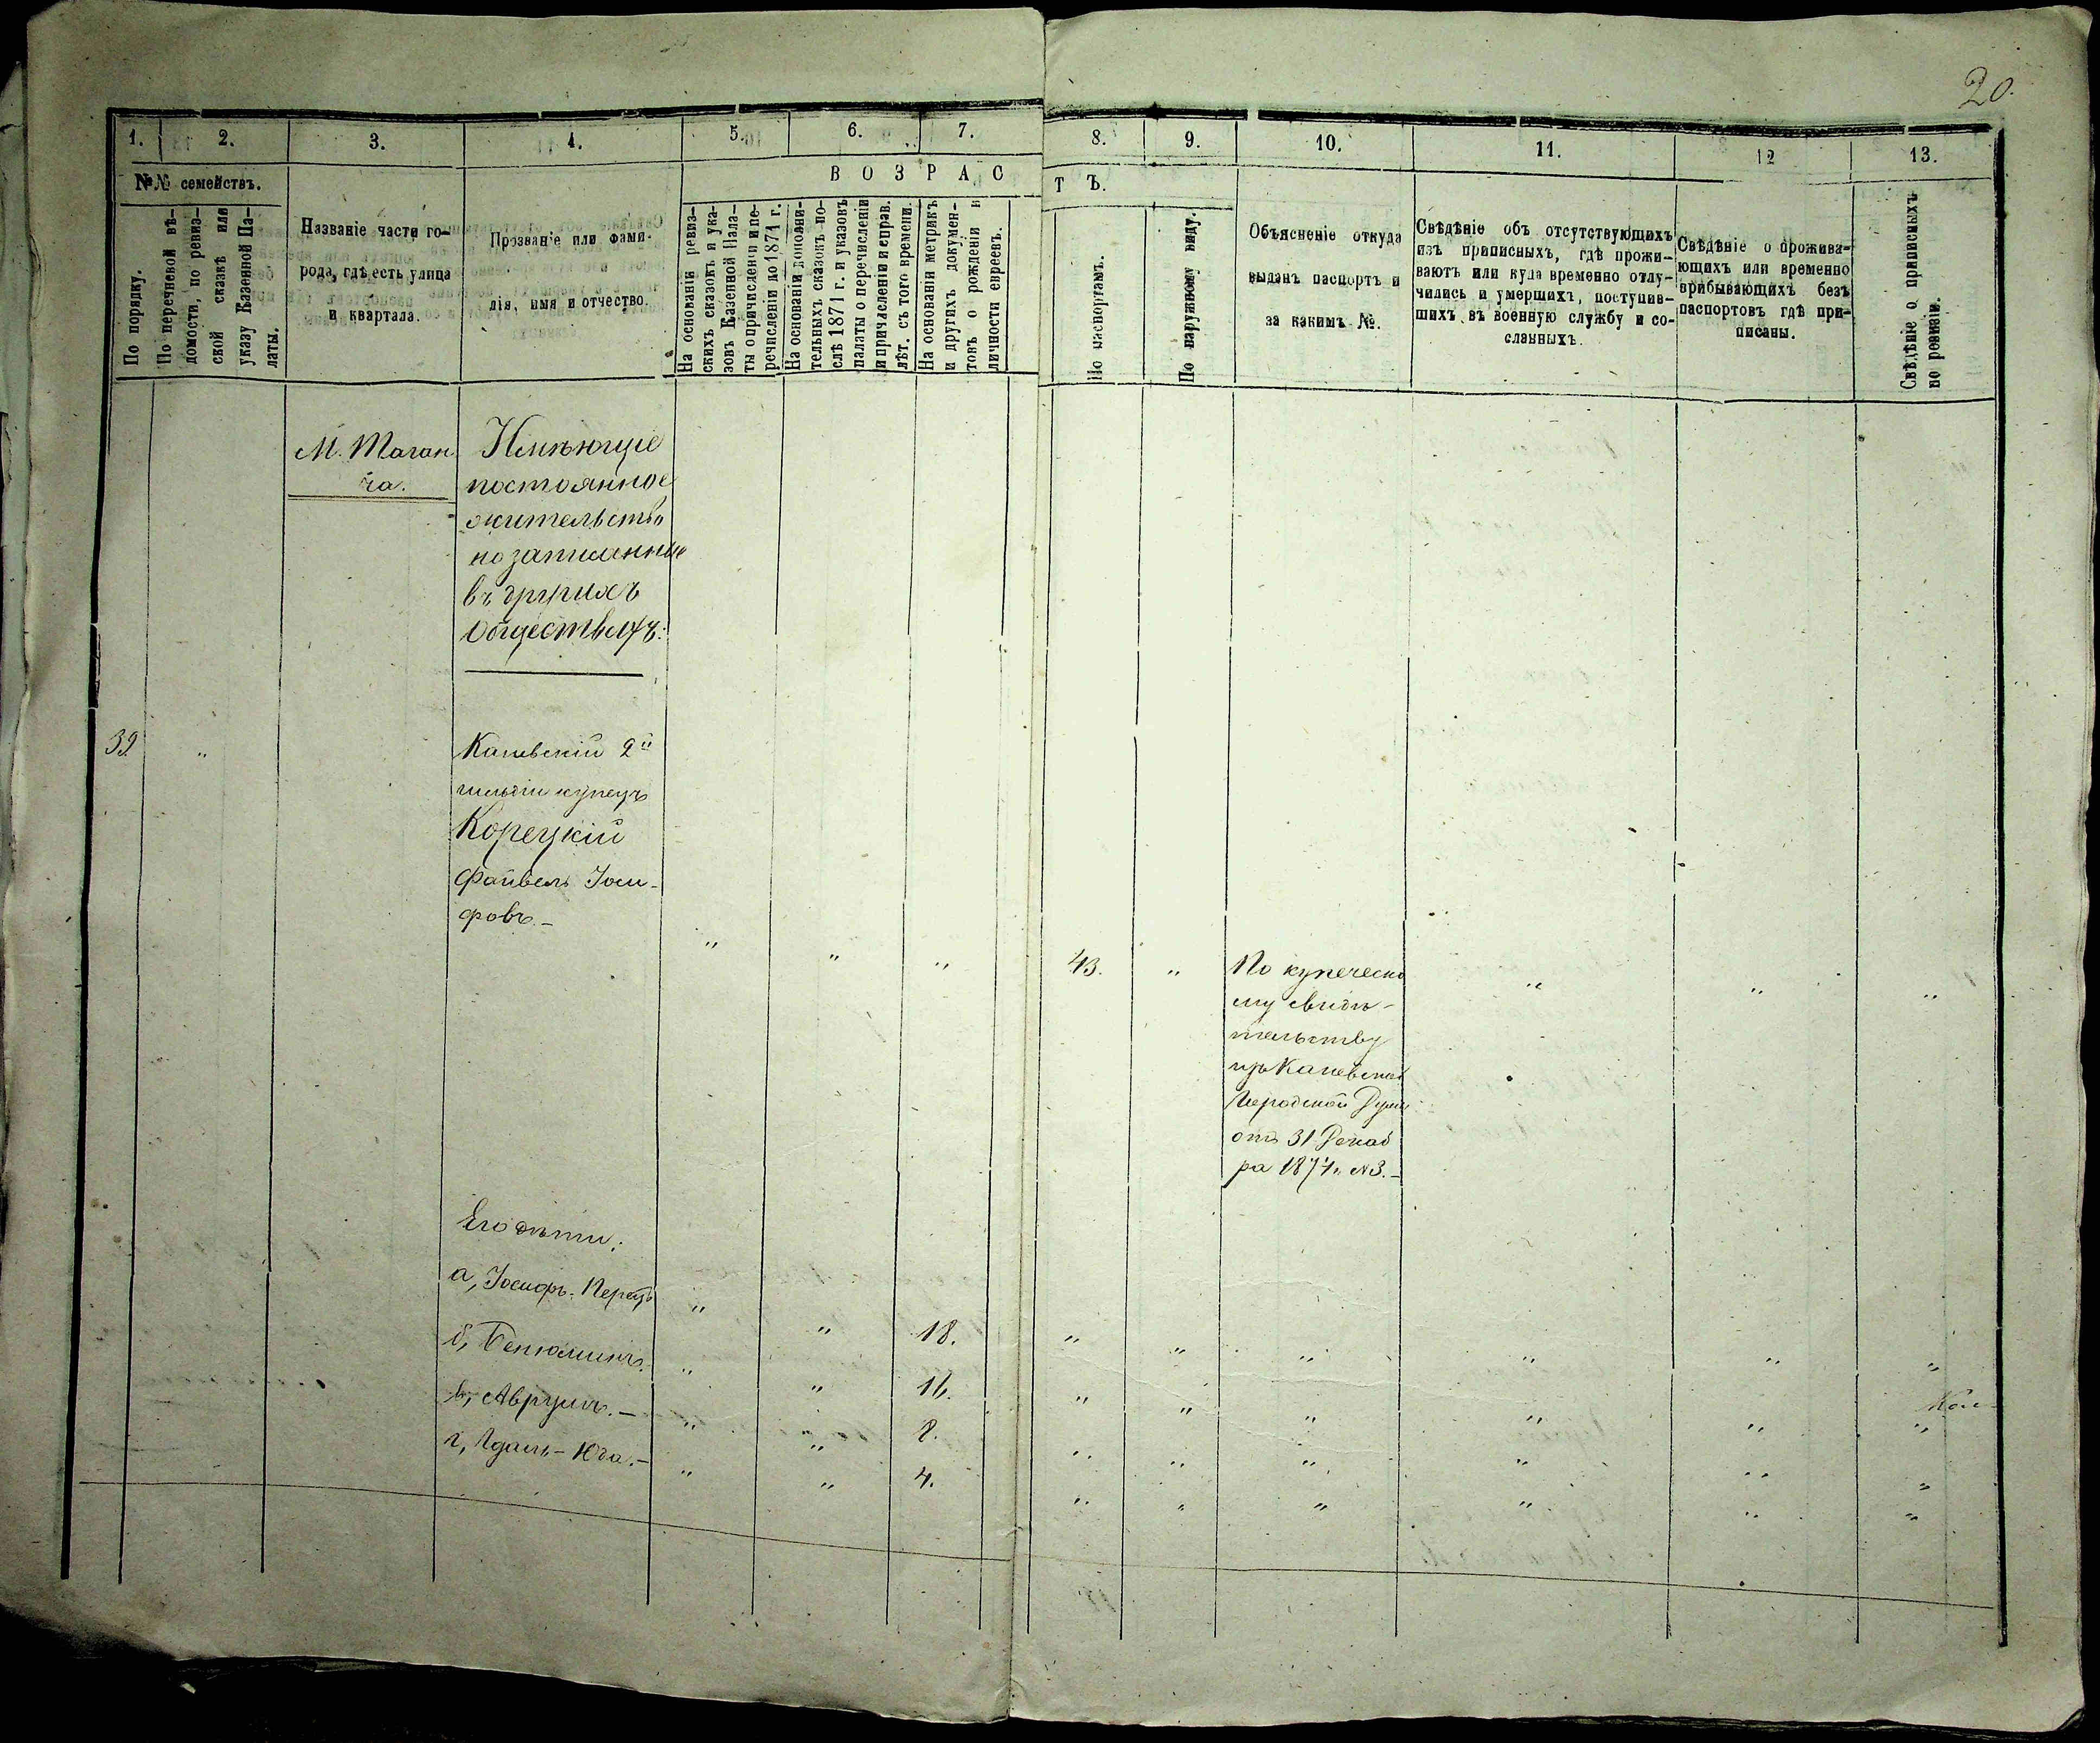 20.
1.
2.
3.
4.
5.
6.
7.
8.
9.
10.
11.
12
13.
№№ семействъ.
ВОЗРАС
ТЪ.
По порядку.
По перечневой вѣ-
домости, по ревиз-
ской сказкѣ или
указу Казенной Па-
латы.
Названіе части го-
рода, гдѣ есть улица
и квартала.
Прозваніе или фами-
лія, имя и отчество.
На основаніи ревиз-
скихъ сказокъ и ука-
зовъ Казенной Пала-
ты о причисленіи и пе-
речисленіи до 1871 г.
На основаніи дополни-
тельныхъ сказокъ по-
слѣ 1871 г. и указовъ
палаты о перечисленіи
и причисленіи и справ.
лѣт. съ того времени.
На основаніи метрикъ
и другихъ докумен-
товъ о рожденіи и
личности евреевъ.
По паспортамъ.
По наружному виду.
Объясненіе откуда
выданъ паспортъ и
за какимъ №.
Свѣдѣніе объ отсутствующихъ
изъ приписныхъ, гдѣ прожи-
ваютъ или куда временно отлу-
чились и умершихъ, поступив-
шихъ въ военную службу и со-
сланныхъ.
Свѣдѣніе о прожива-
ющихъ или временно
прибывающихъ безъ
паспортовъ гдѣ при-
писаны.
Свѣдѣніе о приписныхъ
по ревизіи.
М. Таган
ча.
Имѣющіе
постоянное
жительство
но записанные
въ другихъ
Обществахъ:
39. "
Каневскій 2й
гильдіи купецъ
Корецкій
Файвель Іоси-
фовъ.-
" " " 43. " " " "
По купеческо
му свидѣ-
тельству
изъ Каневской
Городской Думы
отъ 31 Декаб
ря 1874 г. №3.-
Его дѣти:
а, Іосифъ-Перецъ " " 18. " " " " " "
б, Бенюминъ. " " 16. " " " " " "
в, Аврумъ.- " " 8. " " " " " "
г, Идель-Юда.- " " 4. " " " " " "